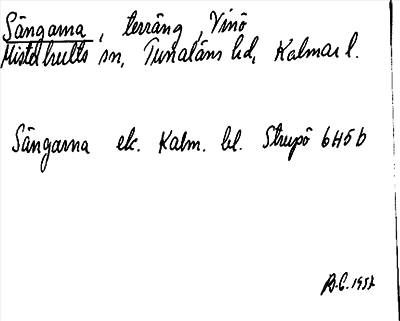 Sängarna, terräng, Vinö
Misterhults sn, Tunaläns hd, Kalmar l.
Sängarna ek. Kalm. bl. Strupö 6H5b
B.C. 1957